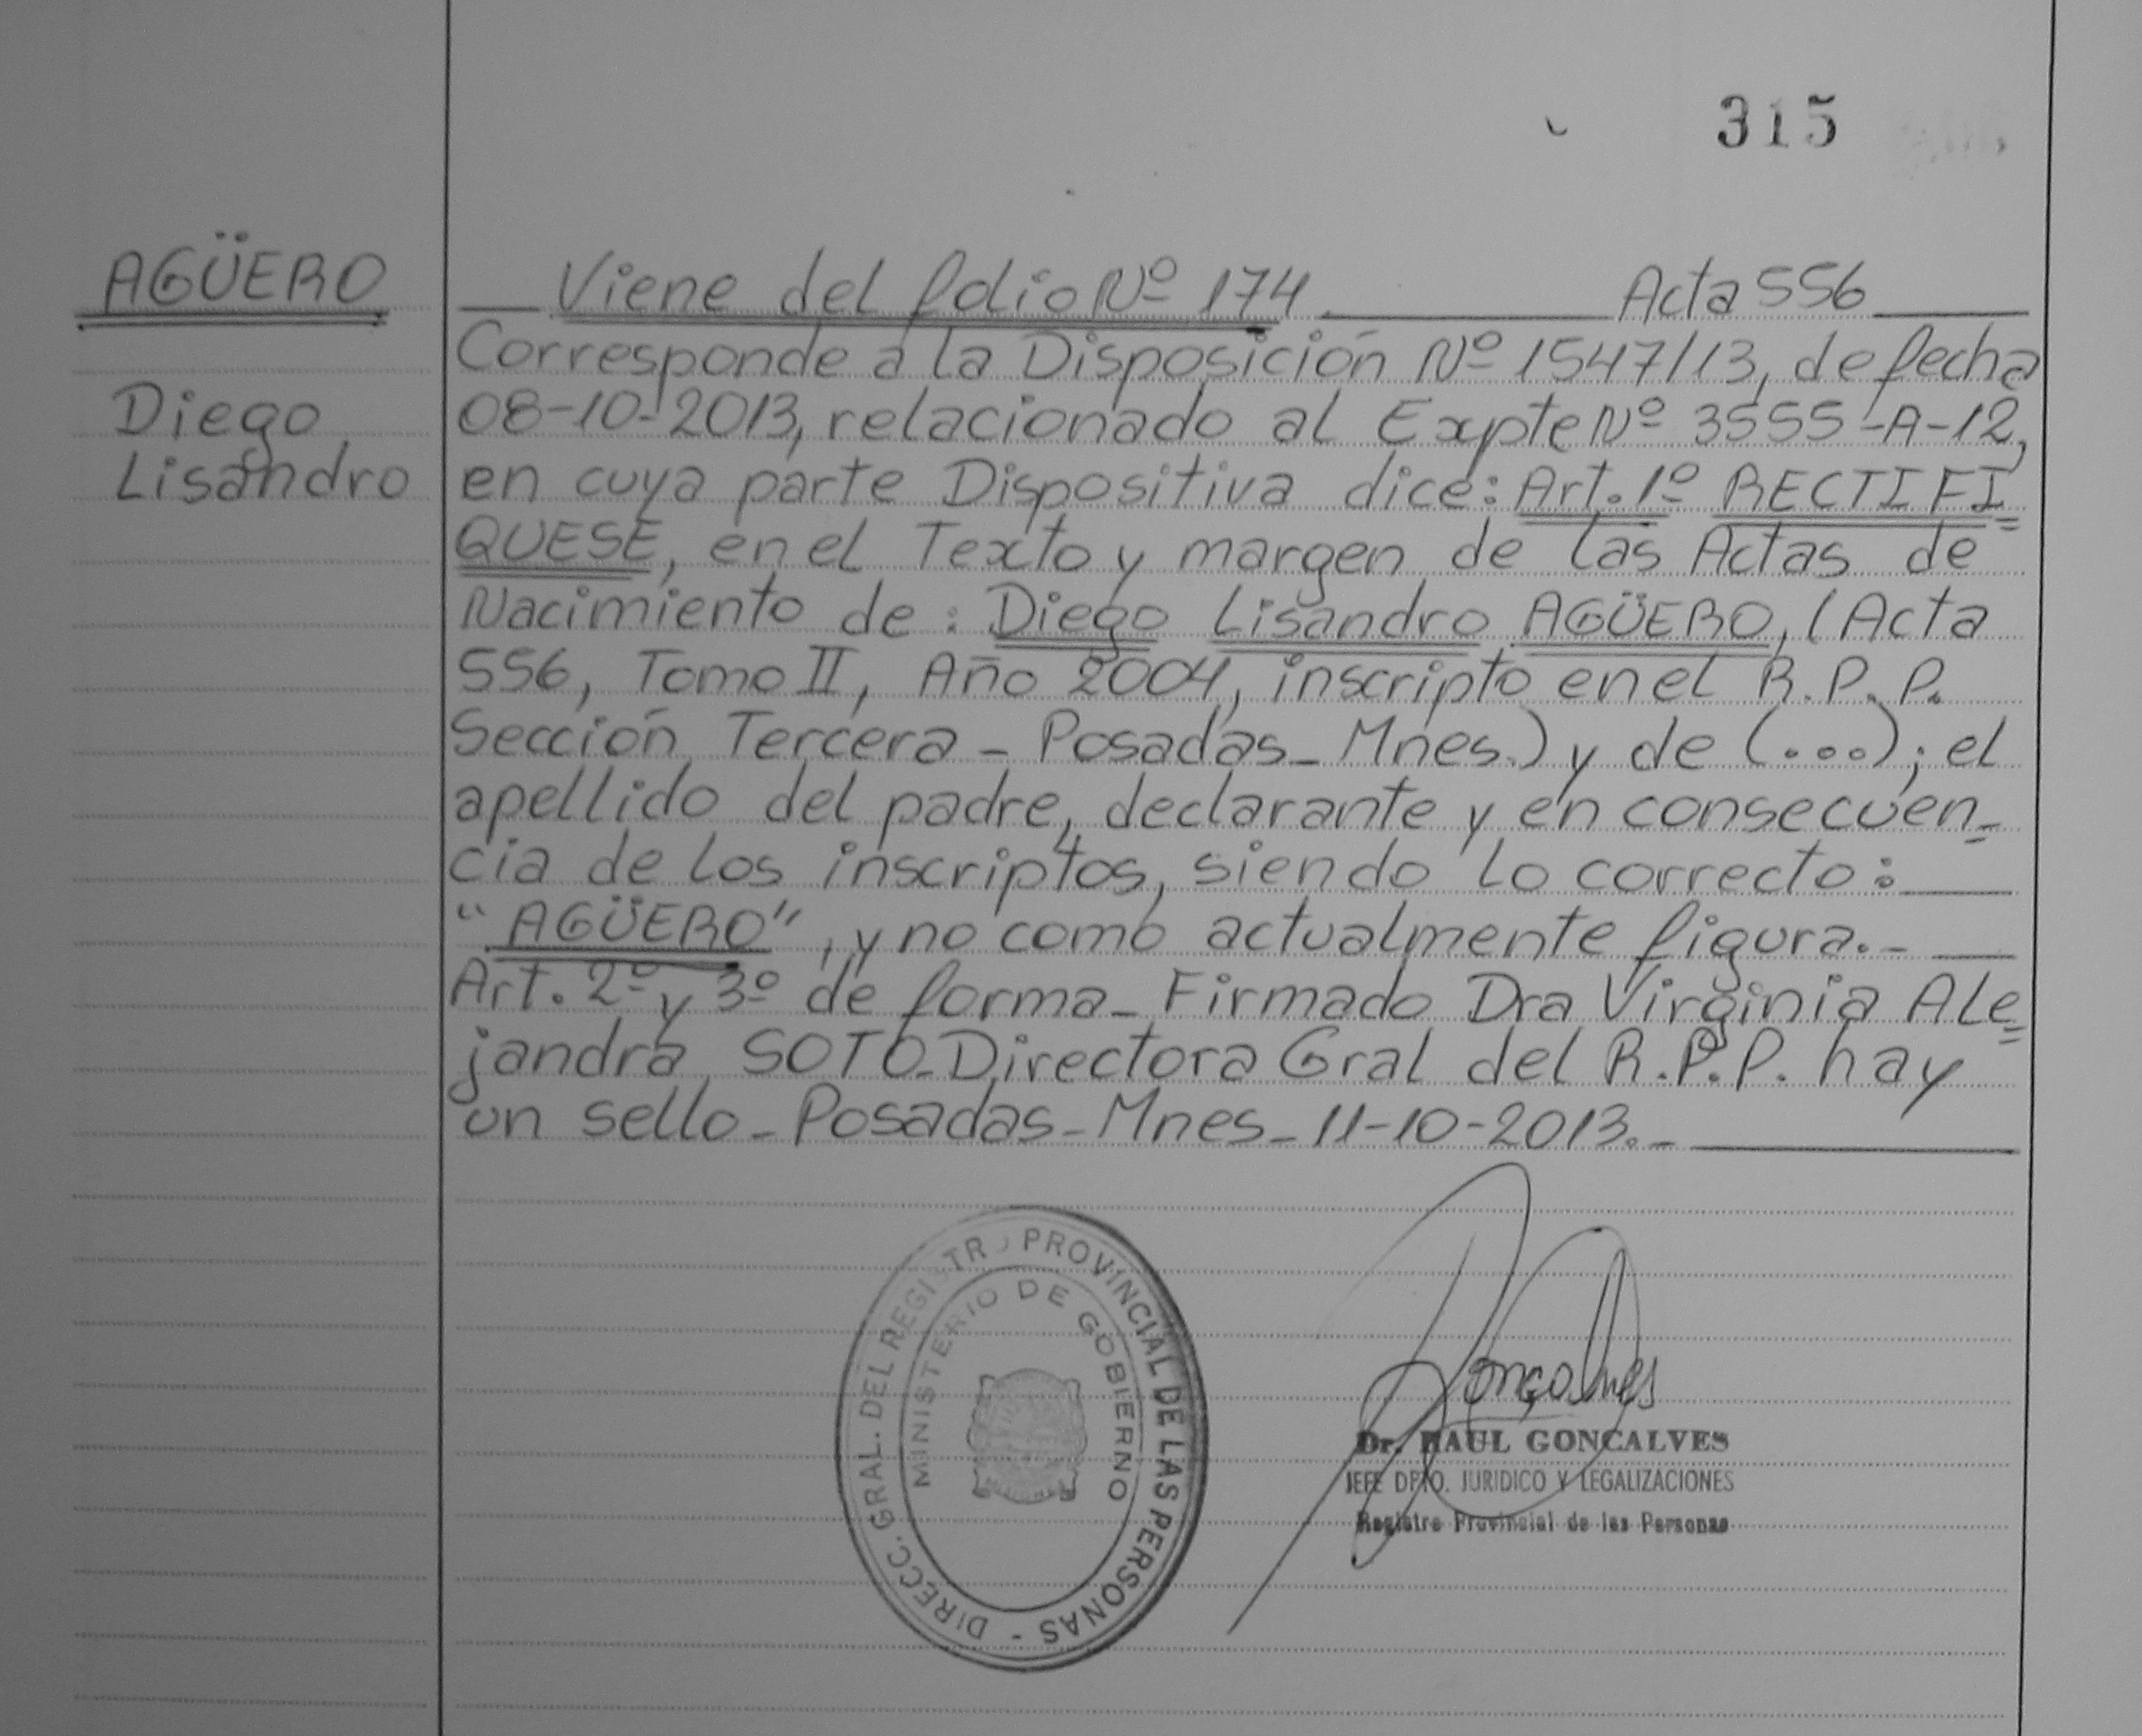 315
AGÜERO
Diego
Lisandro
Viene del folio Nº 174 Acta 556
Corresponde a la Disposición Nº 1547/13, de fecha
08-10-2013, relacionado al Expte Nº 3555-A-12,
en cuya parte Dispositiva dice: Art. 1º RECTIFI=
QUESE, en el Texto y margen de las Actas de
Nacimiento de: Diego Lisandro AGÜERO, (Acta
556, Tomo II, Año 2004, inscripto en el R.P.P.
Sección Tercera - Posadas - Mnes.) y de (...); el
apellido del padre, declarante y en consecuen=
cia de los inscriptos, siendo lo correcto:
"AGÜERO", y no como actualmente figura.-
Art. 2º y 3º de forma - Firmado Dra Virginia Ale=
jandra SOTO - Directora Gral del R.P.P. hay
un sello - Posadas - Mnes - 11-10-2013.-
DIRECC. GRAL. DEL REGISTRO PROVINCIAL DE LAS PERSONAS -
MINISTERIO DE GOBIERNO
Gonçalves
Dr. RAUL GONCALVES
JEFE DPTO. JURIDICO Y LEGALIZACIONES
Registro Provincial de las Personas